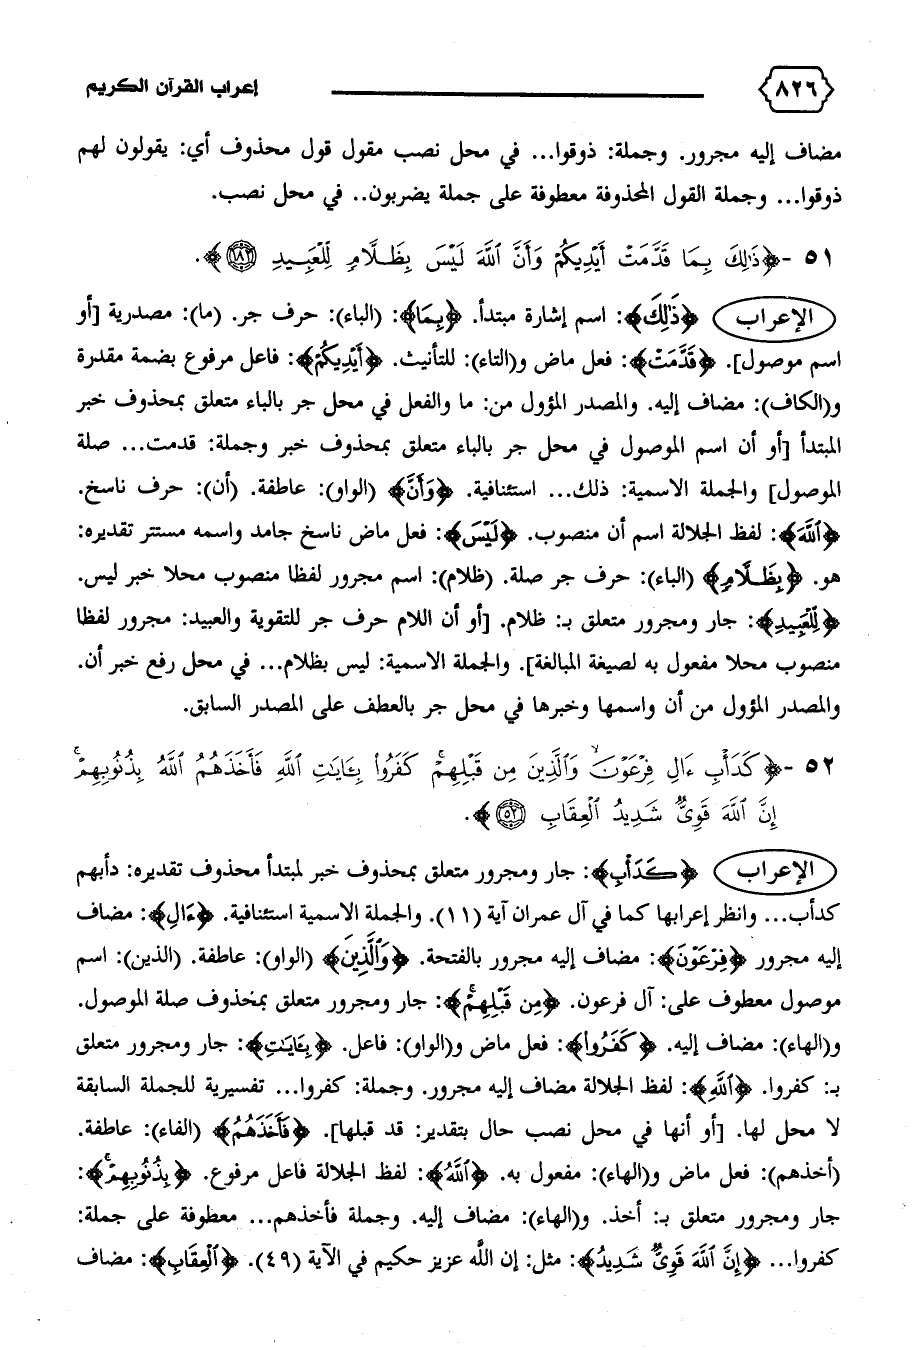 ٨٢٦ إعراب القرآن الكريم
مضاف إليه مجرور. وجملة: ذوقوا... في محل نصب مقول قول محذوف أي: يقولون لهم
ذوقوا... وجملة القول المحذوفة معطوفة على جملة يضربون.. في محل نصب.
٥١ - ﴿ذَٰلِكَ بِمَا قَدَّمَتْ أَيْدِيكُمْ وَأَنَّ ٱللَّهَ لَيْسَ بِظَلَّٰمٍ لِّلْعَبِيدِ ﴿١٨٢﴾﴾.
الإعراب ﴿ذَٰلِكَ﴾: اسم إشارة مبتدأ. ﴿بِمَا﴾: (الباء): حرف جر. (ما): مصدرية [أو
اسم موصول]. ﴿قَدَّمَتْ﴾: فعل ماض و(التاء): للتأنيث. ﴿أَيْدِيكُمْ﴾: فاعل مرفوع بضمة مقدرة
و(الكاف): مضاف إليه. والمصدر المؤول من: ما والفعل في محل جر بالباء متعلق بمحذوف خبر
المبتدأ [أو أن اسم الموصول في محل جر بالباء متعلق بمحذوف خبر وجملة: قدمت... صلة
الموصول] والجملة الاسمية: ذلك... استئنافية. ﴿وَأَنَّ﴾ (الواو): عاطفة. (أن): حرف ناسخ.
﴿ٱللَّهَ﴾: لفظ الجلالة اسم أن منصوب. ﴿لَيْسَ﴾: فعل ماض ناسخ جامد واسمه مستتر تقديره:
هو. ﴿بِظَلَّٰمٍ﴾ (الباء): حرف جر صلة. (ظلام): اسم مجرور لفظا منصوب محلا خبر ليس.
﴿لِّلْعَبِيدِ﴾: جار ومجرور متعلق بـ: ظلام. [أو أن اللام حرف جر للتقوية والعبيد: مجرور لفظا
منصوب محلا مفعول به لصيغة المبالغة]. والجملة الاسمية: ليس بظلام... في محل رفع خبر أن.
والمصدر المؤول من أن واسمها وخبرها في محل جر بالعطف على المصدر السابق.
٥٢ - ﴿كَدَأْبِ ءَالِ فِرْعَوْنَ ۙ وَٱلَّذِينَ مِن قَبْلِهِمْ ۚ كَفَرُوا۟ بِـَٔايَٰتِ ٱللَّهِ فَأَخَذَهُمُ ٱللَّهُ بِذُنُوبِهِمْ ۚ
إِنَّ ٱللَّهَ قَوِىٌّ شَدِيدُ ٱلْعِقَابِ ﴿٥٢﴾﴾.
الإعراب ﴿كَدَأْبِ﴾: جار ومجرور متعلق بمحذوف خبر لمبتدأ محذوف تقديره: دأبهم
كدأب... وانظر إعرابها كما في آل عمران آية (١١). والجملة الاسمية استئنافية. ﴿ءَالِ﴾: مضاف
إليه مجرور ﴿فِرْعَوْنَ﴾: مضاف إليه مجرور بالفتحة. ﴿وَٱلَّذِينَ﴾ (الواو): عاطفة. (الذين): اسم
موصول معطوف على: آل فرعون. ﴿مِن قَبْلِهِمْ ۚ﴾: جار ومجرور متعلق بمحذوف صلة الموصول.
و(الهاء): مضاف إليه. ﴿كَفَرُوا۟﴾: فعل ماض و(الواو): فاعل. ﴿بِـَٔايَٰتِ﴾: جار ومجرور متعلق
بـ: كفروا. ﴿ٱللَّهِ﴾: لفظ الجلالة مضاف إليه مجرور. وجملة: كفروا... تفسيرية للجملة السابقة
لا محل لها. [أو أنها في محل نصب حال بتقدير: قد قبلها]. ﴿فَأَخَذَهُمُ﴾ (الفاء): عاطفة.
(أخذهم): فعل ماض و(الهاء): مفعول به. ﴿ٱللَّهُ﴾: لفظ الجلالة فاعل مرفوع. ﴿بِذُنُوبِهِمْ ۚ﴾:
جار ومجرور متعلق بـ: أخذ. و(الهاء): مضاف إليه. وجملة فأخذهم... معطوفة على جملة:
كفروا... ﴿إِنَّ ٱللَّهَ قَوِىٌّ شَدِيدُ﴾: مثل: إن الله عزيز حكيم في الآية (٤٩). ﴿ٱلْعِقَابِ﴾: مضاف